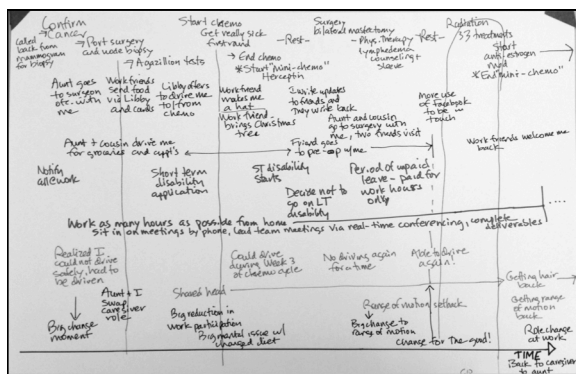 Confirm
Cancer
Called
back from
mammogram
for biopsy
Port surgery
and node biopsy
A gazillion tests
Start chemo
Get really sick
first round
End chemo
*Start "mini-chemo"
Herceptin
-Rest-
Surgery
bilateral mastectomy
Phys. Therapy
lymphedema
counseling +
sleeve
-Rest-
Radiation
33 treatments
Start
anti estrogen
med
*End "mini-chemo"
Aunt goes
to surgeon
ofc. with
me
Work friends
send food
via Libby
and cards
Libby offers
to drive me
to/from
chemo
Work friend
makes me
a hat
Work friend
brings Christmas
tree
I write updates
to friends and
They write back
Aunt and cousin
go to surgery with
me, two friends visit
More use
of Facebook
to be in
touch
Aunt + cousin drive me
for groceries and appt's
Friend goes
to pre-op w/me
Work friends welcome me
back
Notify
all @ work
Short term
disability
application
ST disability
starts
Decide not to
go on LT
disability
Period of unpaid
leave - paid for
work hours
only
Work as many hours as possible from home
Sit in on meetings by phone, lead team meetings via real-time conferencing, complete
deliverables
Realized I
could not drive
safely, had to
be driven
Could drive
during Week 3
of chemo cycle
No driving again
for a time
Able to drive
again!
Aunt + I
swap
caregiver
role
Shaved head
Getting hair
back
Big change
moment
Big reduction in
work participation
Big mental issue w/
changed diet
Range of motion setback
Big change to
range of motion
Change for The good!
Getting range
of motion
back
Role change
at work
TIME
Back to caregiver
to aunt